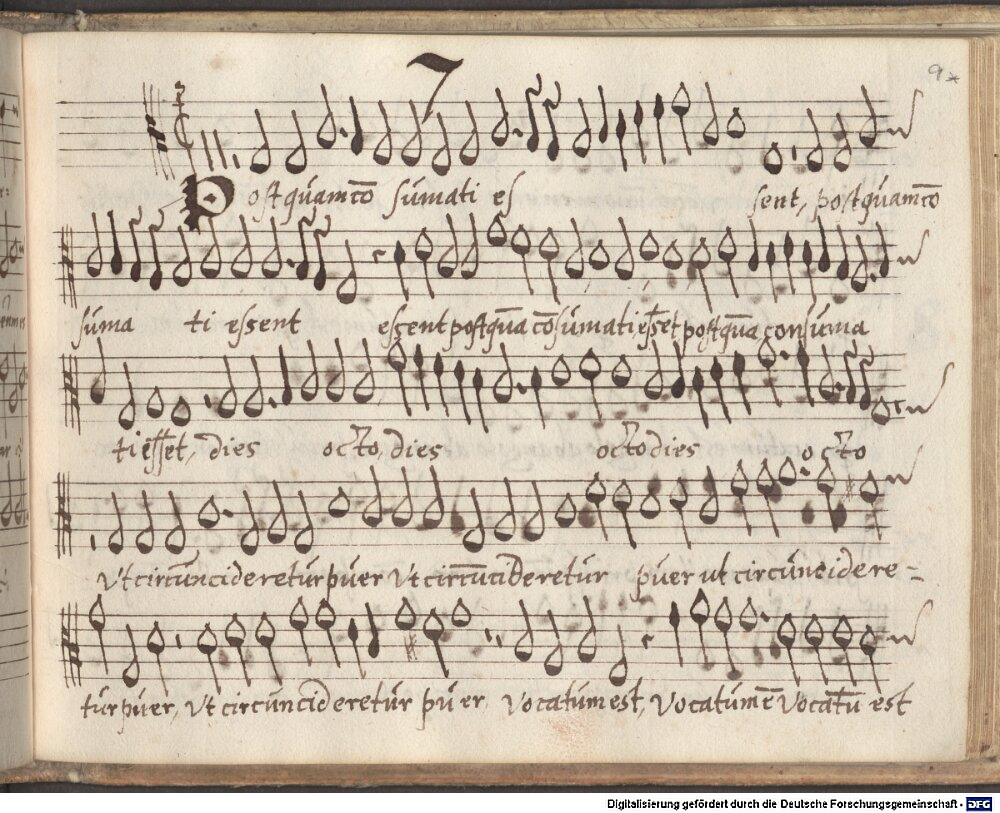 7
9
Postquam cō sumati es sent, postquam cō
suma ti essent essent postquā cōsumati esset postquā consuma
ti esset, dies octo, dies octo dies octo
Vt circūncideretur puer Vt circūcideretur puer ut circuncidere-
tur puer, Vt circuncideretur puer Vocatum est, Vocatum ē Vocatū est
Digitalisierung gefördert durch die Deutsche Forschungsgemeinschaft - DFG